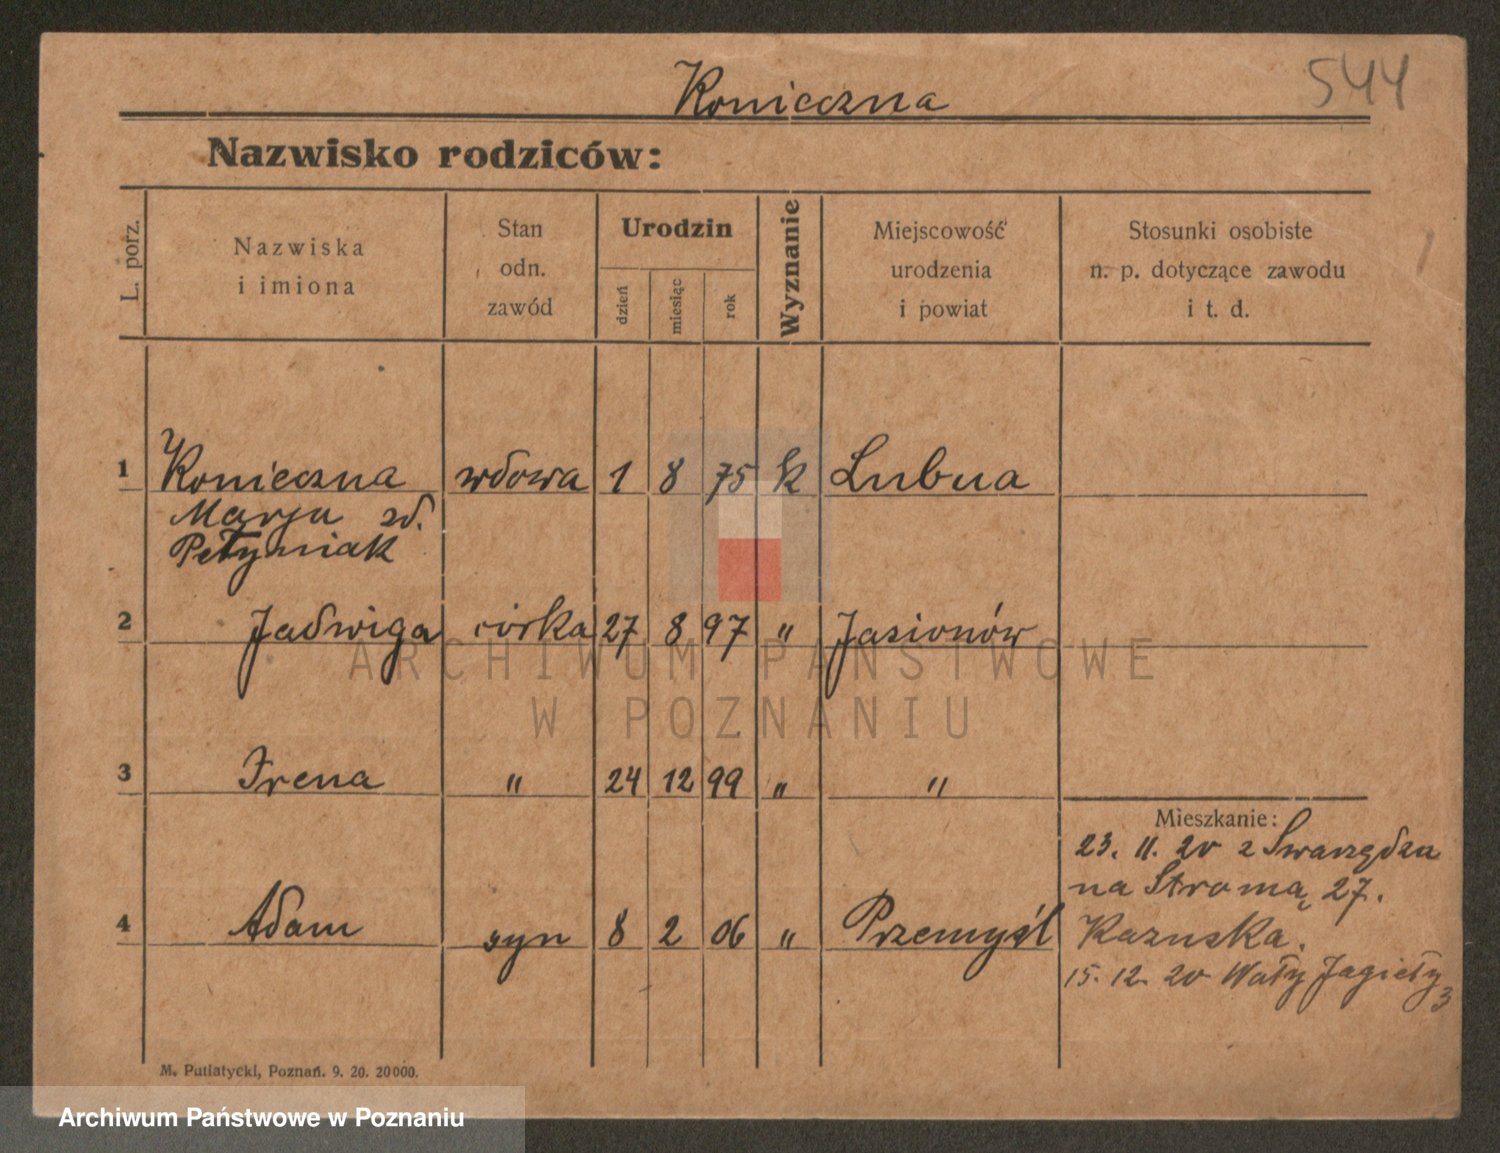 Konieczna
544
Nazwisko rodziców:
L. porz.
Nazwiska
i imiona
Stan
odn.
zawód
Urodzin
dzień
miesiąc
rok
Wyznanie
Miejscowość
urodzenia
i powiat
Stosunki osobiste
n. p. dotyczące zawodu
i t. d.
1 Konieczna wdowa 1 8 75 k Lubna
Marja
2 Jadwiga córka 27 8 97 " Jasionów
3 Irena " 24 12 99 " "
4 Adam syn 8 2 06 " Przemyśl
Mieszkanie:
23. 11. 20 z Swarzędza
na Stromą 27.
15. 12. 20 Wały Jagiełły
3
M. Putiatycki, Poznań. 9. 20. 20000.
ARCHIWUM PAŃSTWOWE
W POZNANIU
Archiwum Państwowe w Poznaniu